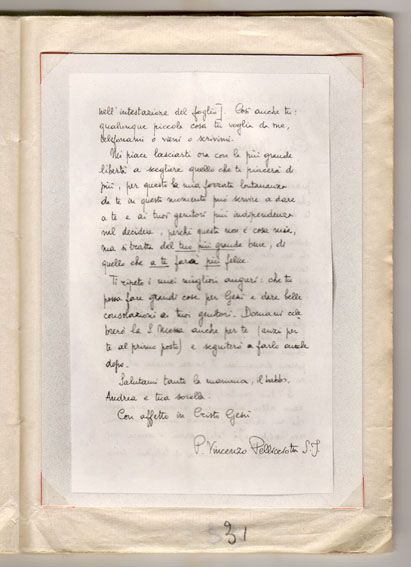 nell'intestazione del foglio]. Così anche tu:
qualunque piccola cosa tu voglia da me,
telefonami o vieni o scrivimi.
Mi piace lasciarti ora con la più grande
libertà a scegliere quello che ti piacerà di
più, per questo la mia forzata lontananza
da te in questo momento può servire a dare
a te e ai tuoi genitori più indipendenza
nel decidere, perché questa non è cosa mia,
ma si tratta del tuo più grande bene, di
quello che a te farà più felice.
Ti ripeto i miei migliori auguri: che tu
possa fare grandi cose per Gesù e dare belle
consolazioni ai tuoi genitori. Domani cele
brerò la S. Messa anche per te (anzi per
te al primo posto) e seguiterò a farlo anche
dopo.
Salutami tanto la mamma, il babbo,
Andrea e tua sorella.
Con affetto in Cristo Gesù
P. Vincenzo S.J.
31